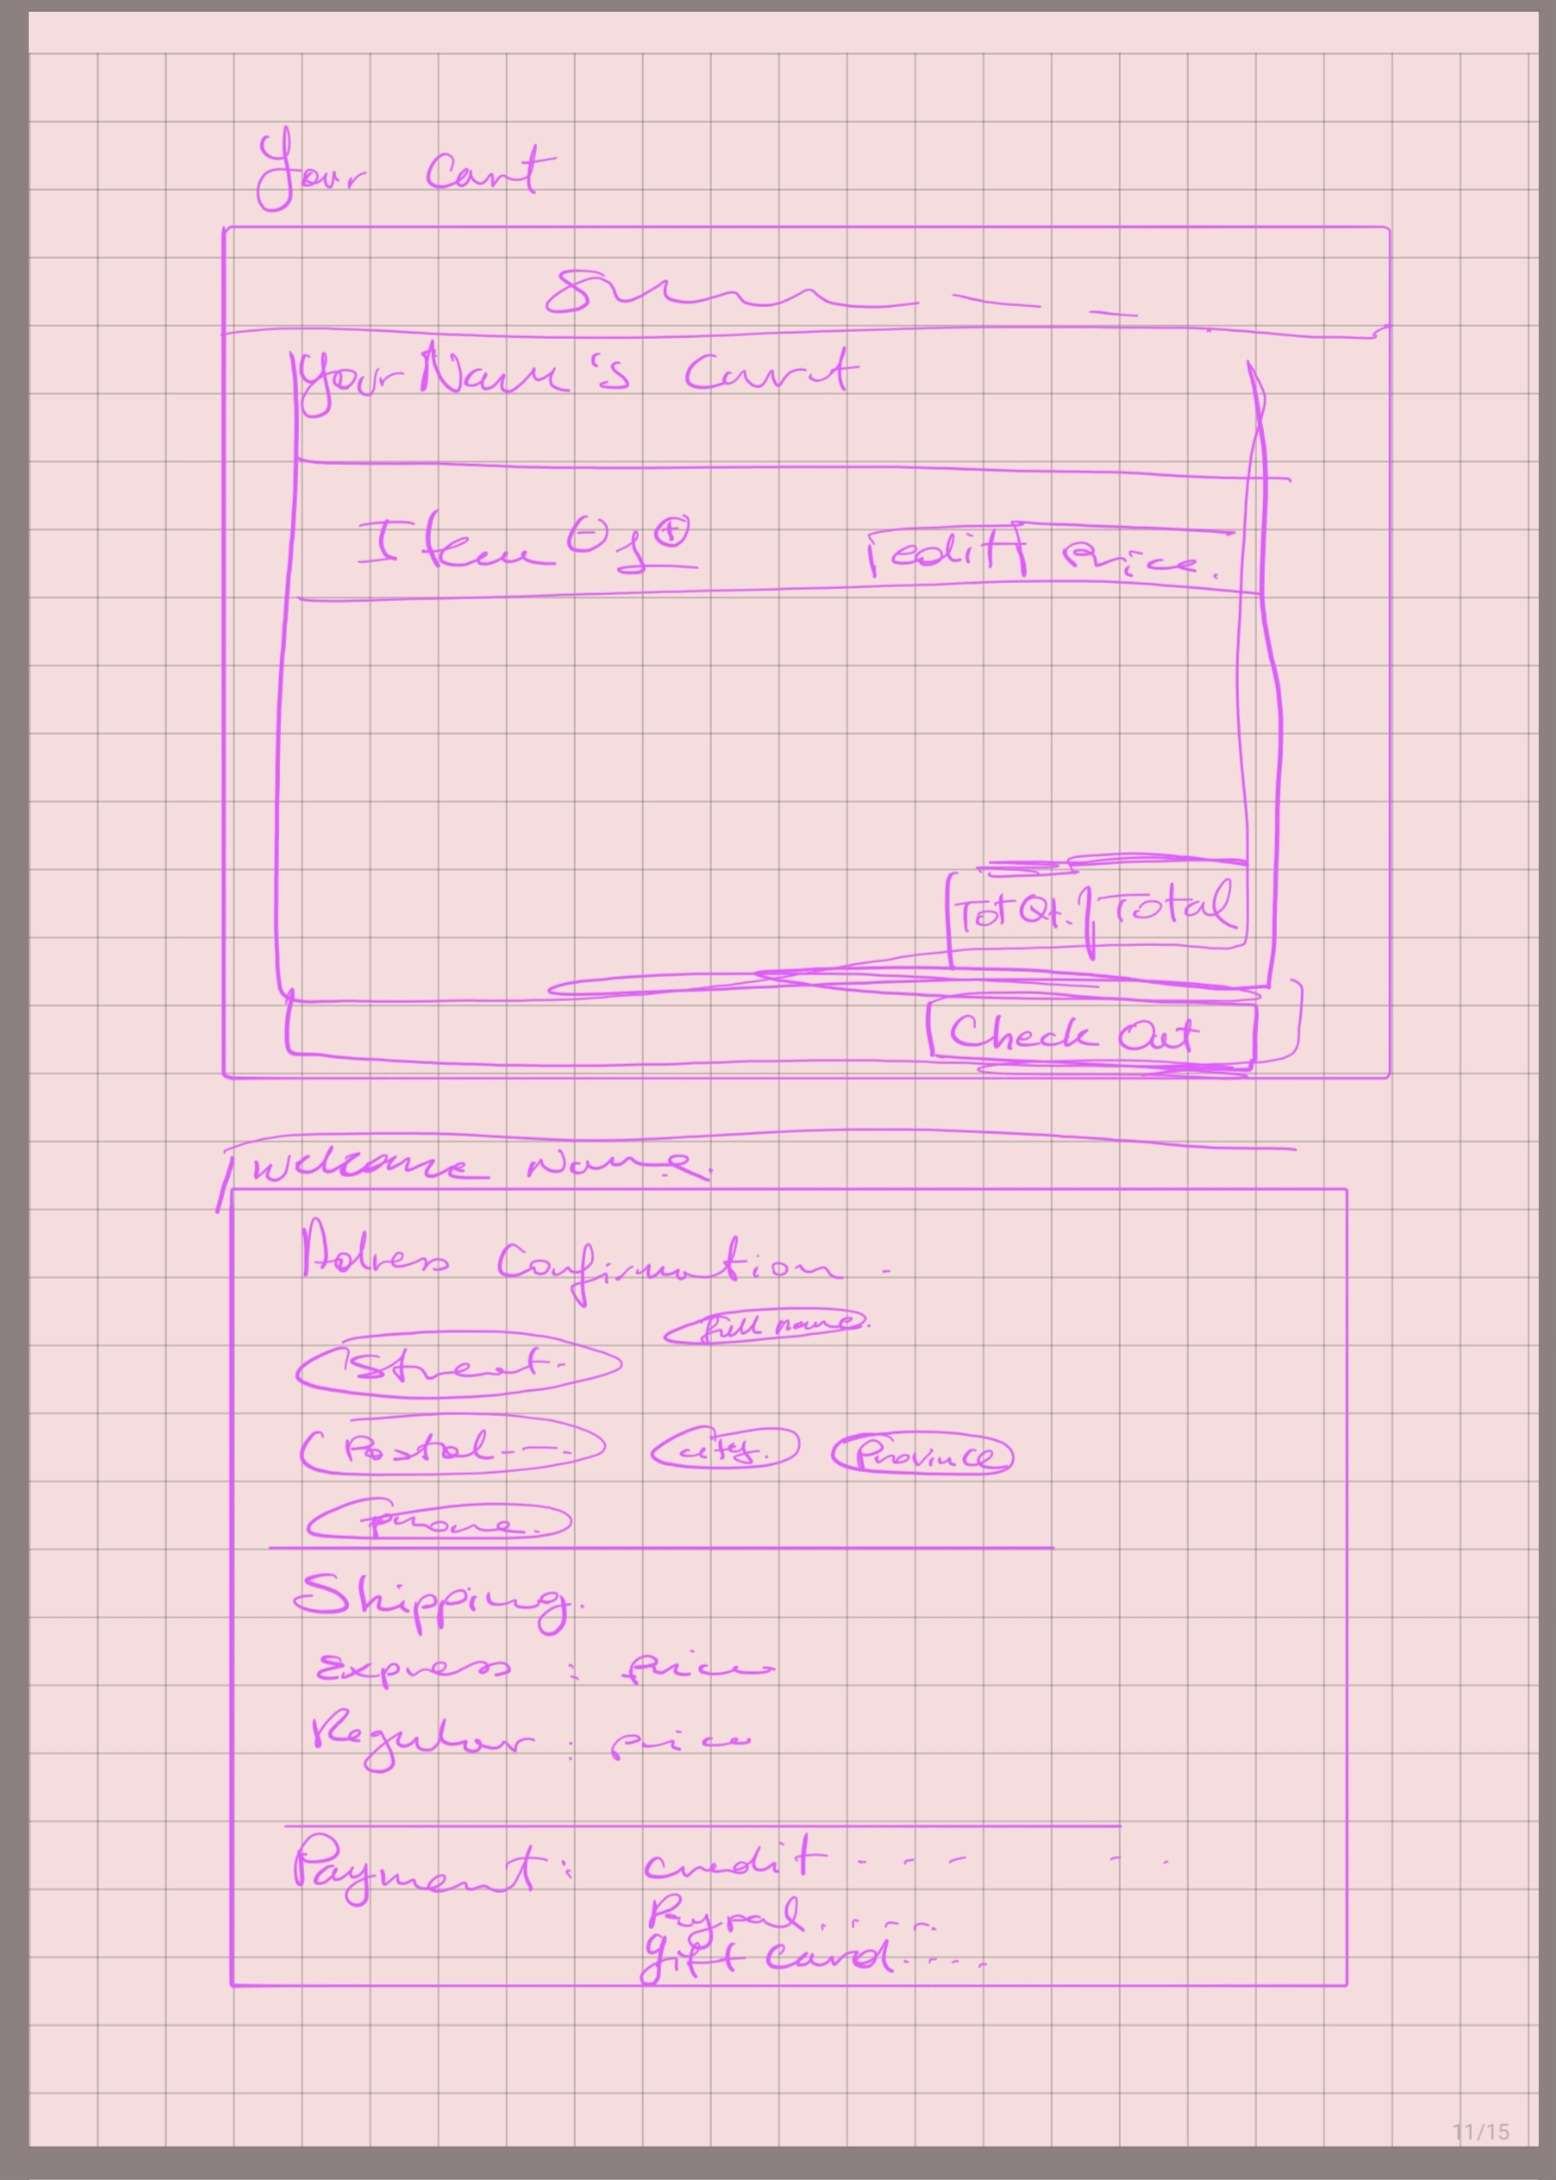 Your Cart
Your Name's Cart
Item - 1 + edit Price.
Tot Qt. Total
Check Out
Welcome Name.
Adress Confirmation -
full name.
Street.-
Postal---- city. Province
phone.
Shipping.
Express : price
Regular : price
Payment : credit - - - - -
Paypal. . - - -.
gift card. . - - -
11/15